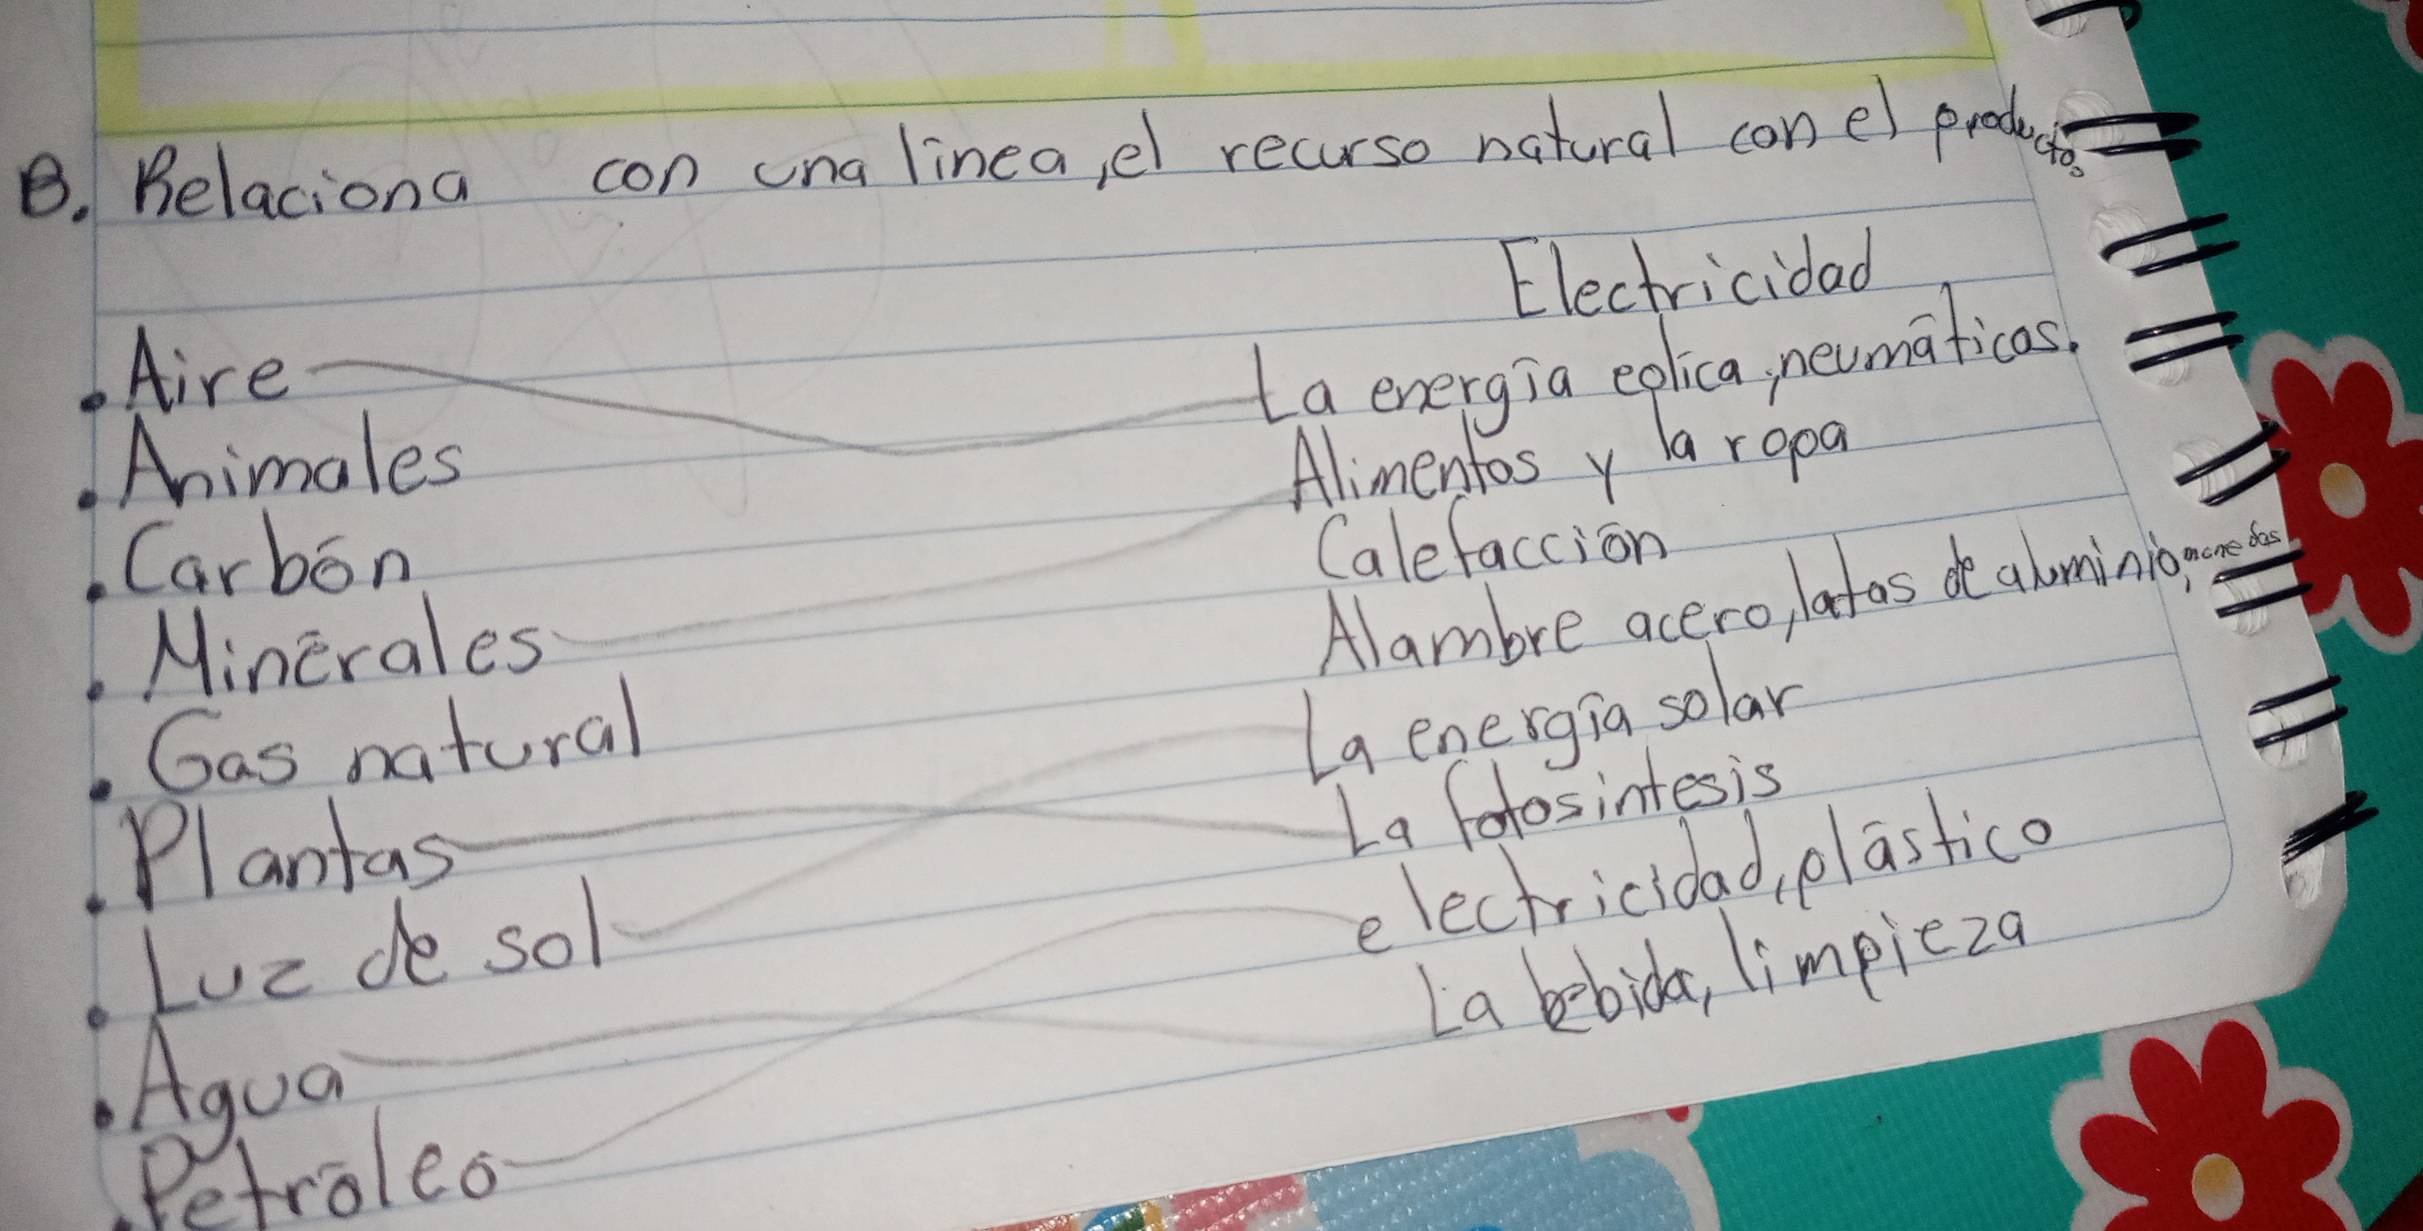 B. Relaciona con una linea, el recurso natural con el producto.
Electricidad
. Aire
La energía eólica, neumáticos.
. Animales
Alimentos y la ropa
. Carbón
Calefacción
. Minerales
Alambre acero, latas de aluminio, monedas
. Gas natural
La energía solar
. Plantas
La fotosintesis
. Luz de sol
electricidad, plástico
. Agua
La bebida, limpieza
. Petróleo